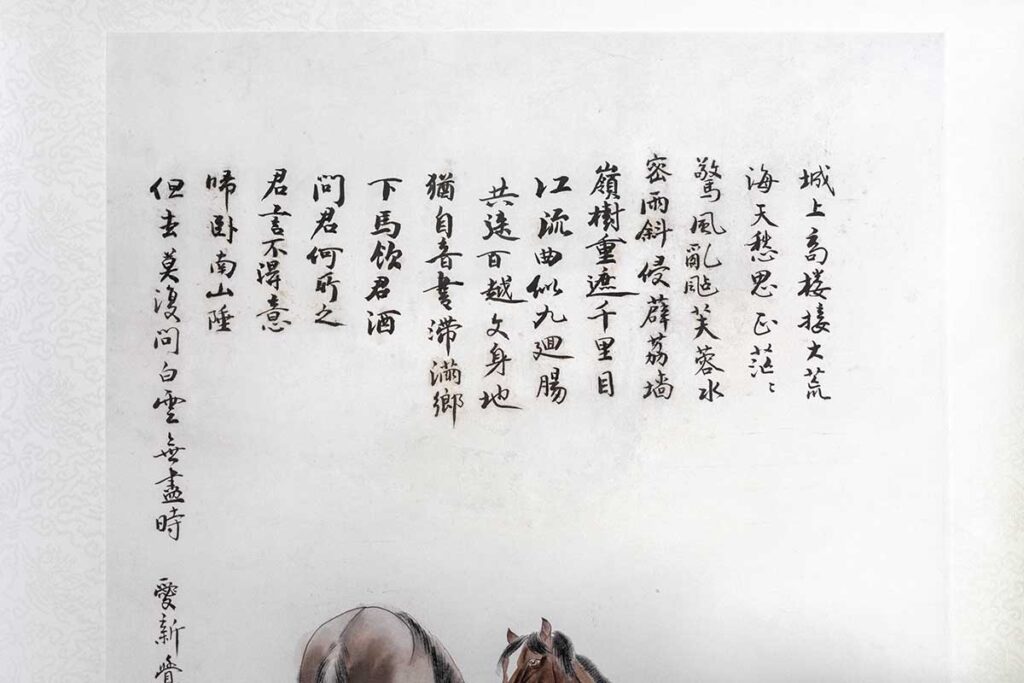 城上高楼接大荒
海天愁思正茫〻
驚風亂颭芙蓉水
密雨斜侵薜荔墙
嶺樹重遮千里目
江流曲似九廻腸
共百越文身地
猶自音書滯滿鄉
下馬飲君酒
問君何所之
君言不得意
啼卧南山陲
但去莫復問白雲無盡時 愛新覺